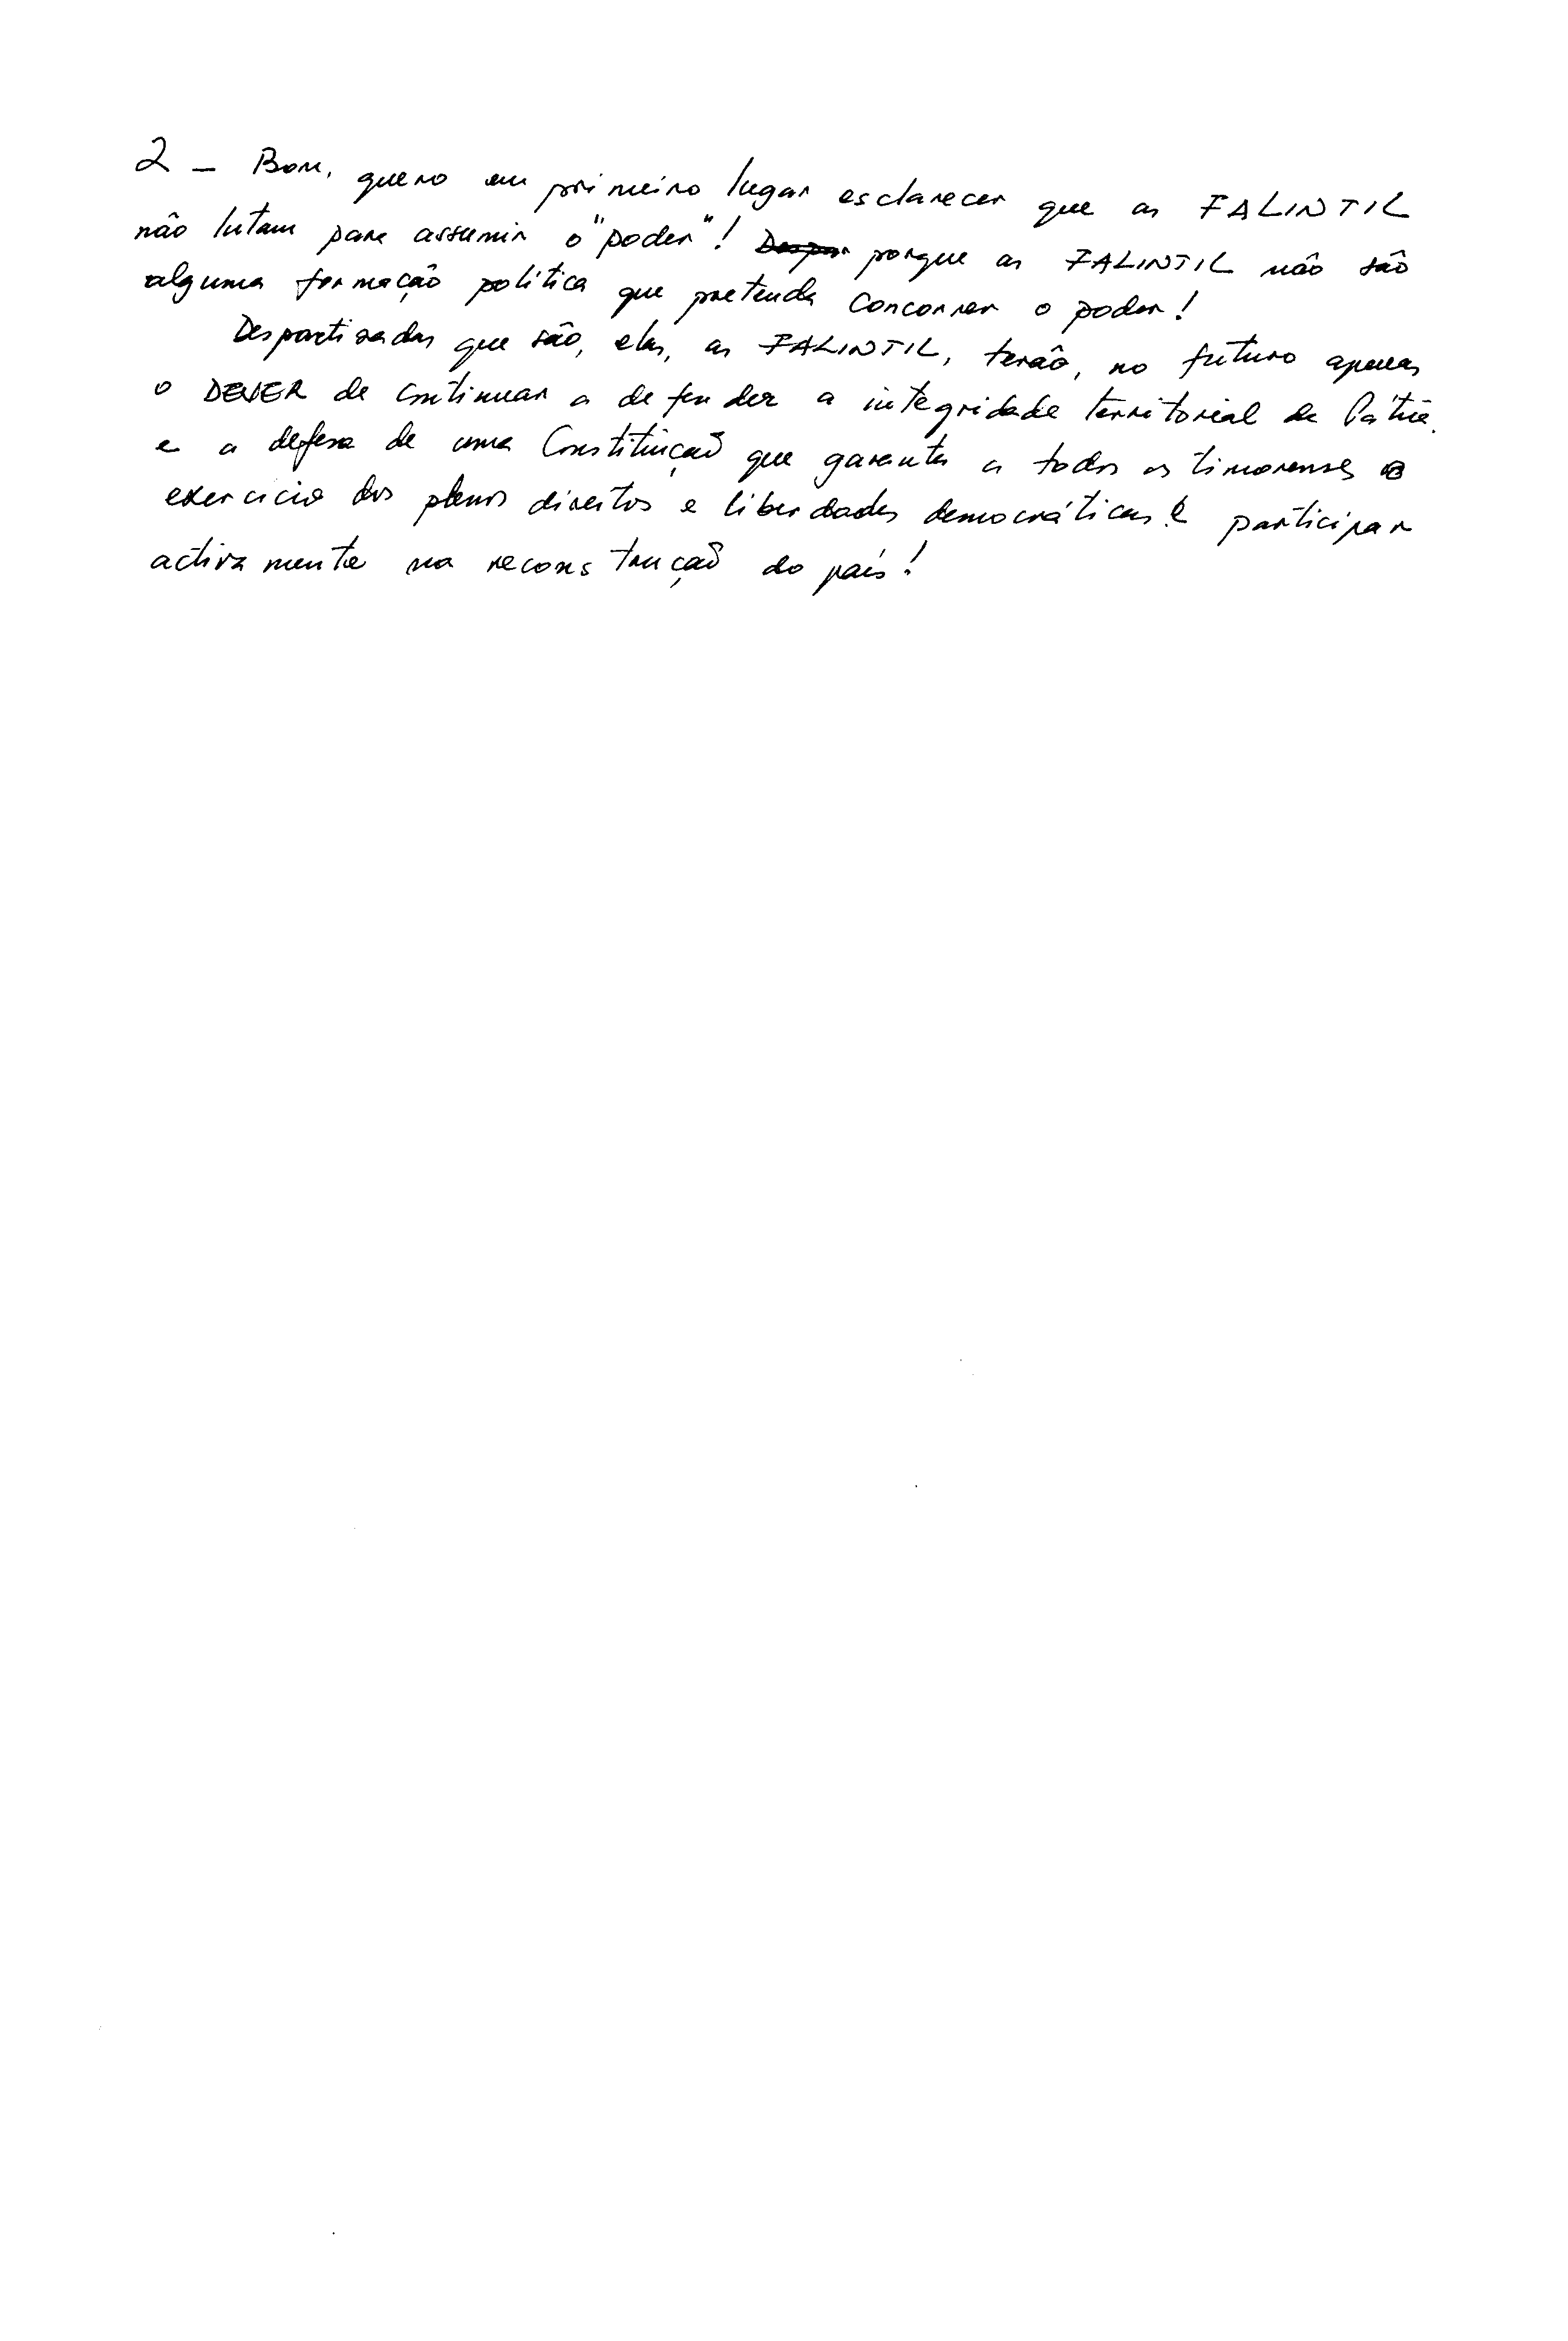 2 – Bom, quero em primeiro lugar esclarecer que as FALINTIL
não lutam para assumir o "poder"! porque as FALINTIL não são
alguma formação política que pretenda concorrer o poder!
Despartizadas que são, elas, as FALINTIL, terão, no futuro apenas
o DEVER de continuar a defender a integridade territorial da Pátria
e a defesa de uma Constituição que garanta a todos os timorenses o
exercício dos plenos direitos e liberdades democráticas e participar
activamente na reconstrução do país!